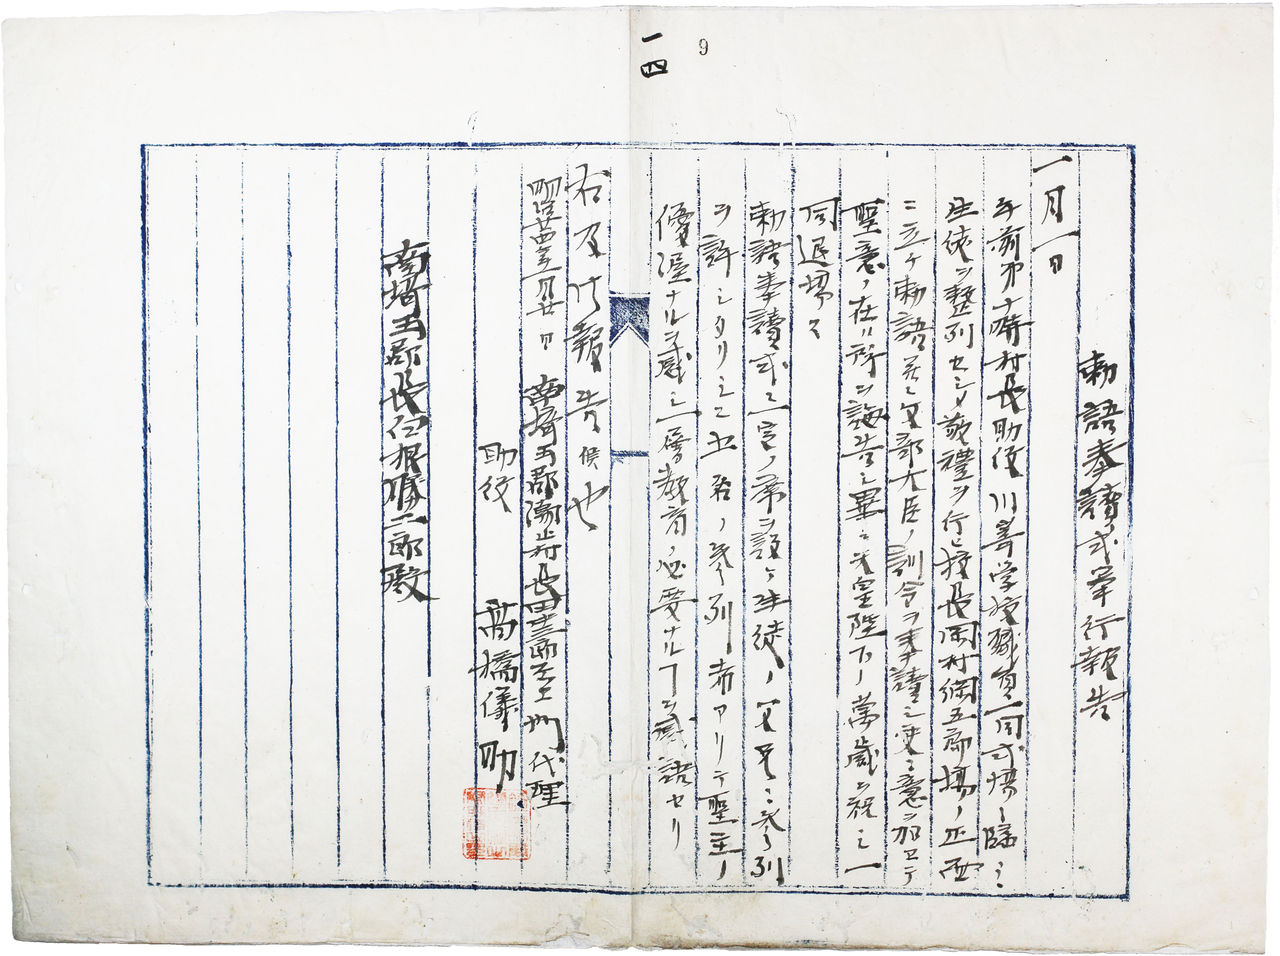 一四
9
勅語奉讀式挙行報告
一月一日
午前第十時村長助役川暑学校職員一同式場ニ臨ミ
生徒ヲ整列セシメ敬禮ヲ行ヒ校長岡村綱五郎場ノ正面
ニ立チ勅語並ニ文部大臣ノ訓令ヲ奉讀シ更ニ意ヲ加ヘテ
聖意ノ在ル所ヲ誨告シ畢テ天皇陛下ノ萬歳ヲ祝シ一
同退場ス
勅語奉讀式ニ一定ノ席ヲ設ケ生徒ノ父兄ニ参列
ヲ許シタリシニ ノ参列者アリテ聖主ノ
優渥ナルヲ感シ一層教育ノ必要ナルヿヲ感 セリ
右及御報告候也
明治廿四年一月廿 日 南埼玉郡潮止村長田中三郎左エ門代理
助役 高橋儀助
南埼玉郡長 根勝二郎殿